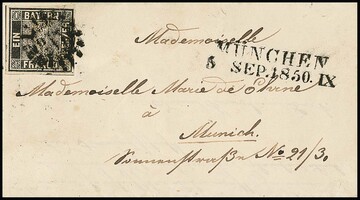 BAYERN
EIN
FRANCO
Mademoiselle
MÜNCHEN
5 SEP. 1850. IX
Mademoiselle Marie de
à
Munich.
Sonnenstraße No 21/3.